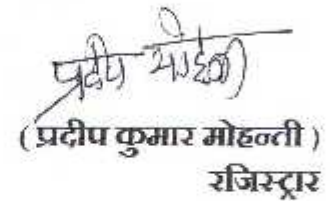 प्रदीप मोहंती
( प्रदीप कुमार मोहन्ती )
रजिस्ट्रार